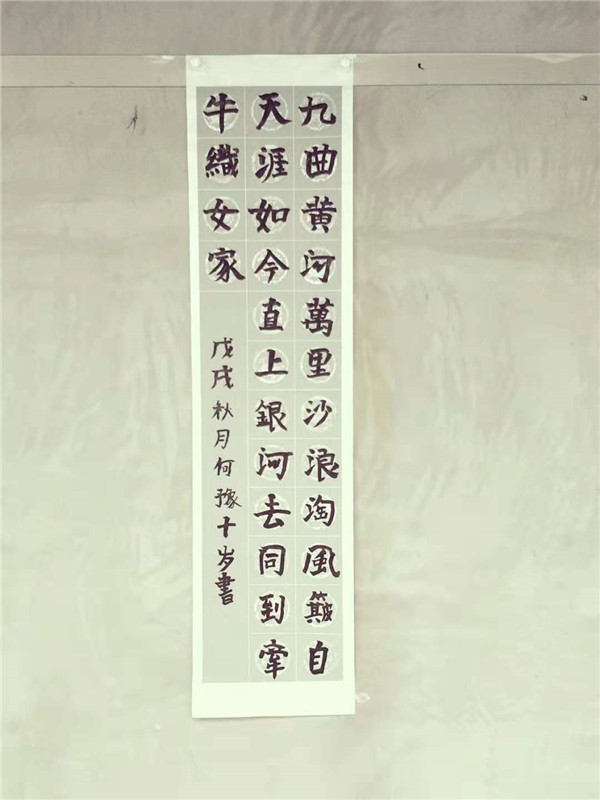 九曲黄河萬里沙浪淘風簸自
天涯如今直上銀河去同到牽
牛織女家
戊戌秋月何豫十岁書